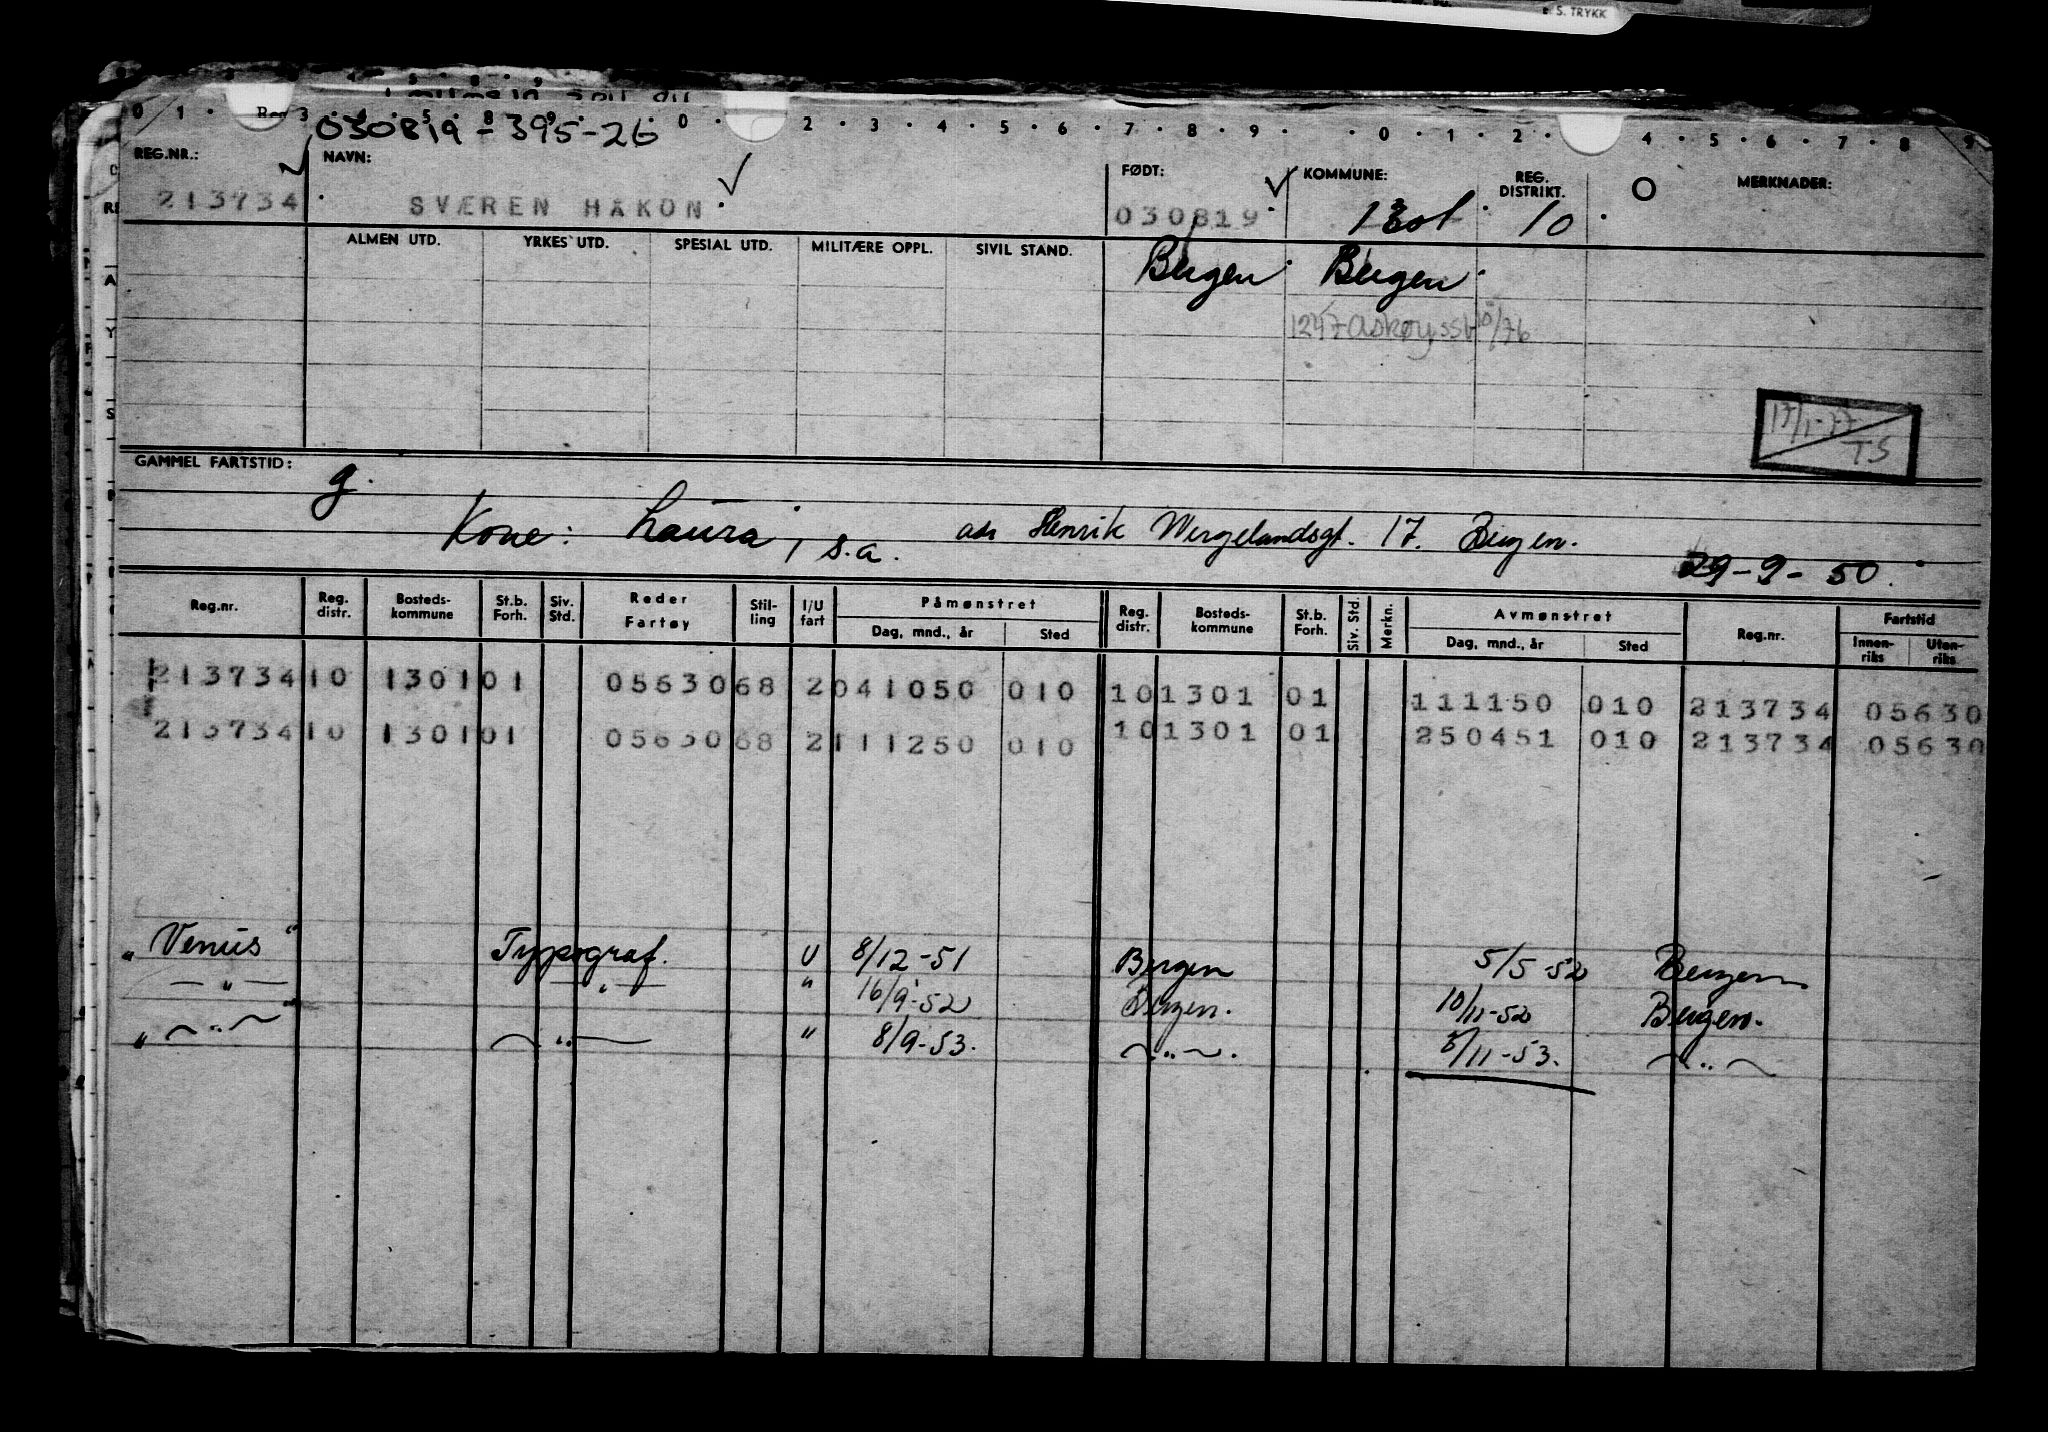 S. TRYKK
030819-395-26
REG.NR.: NAVN: FØDT: KOMMUNE: REG. DISTRIKT. MERKNADER:
213734 SVÆREN HAKON 030819 1301 10
ALMEN UTD. YRKES UTD. SPESIAL UTD. MILITÆRE OPPL. SIVIL STAND. Bergen Bergen
1247 Askøy ssb 10/76
13/1-77
T.S
GAMMEL FARTSTID: g.
Kone: Laura, s.a. adr Henrik Wergelandsgt. 17. Bergen.
29-9-50.
Reg.nr. Reg. distr. Bosteds-kommune St.b. Forh. Siv. Std. Reder Fartøy Stil-ling I/U fart Påmønstret Dag, mnd., år Sted Reg. distr. Bosteds-kommune St.b. Forh. Siv. Std. Merkn. Avmønstret Dag, mnd., år Sted Reg.nr. Fartstid Innen-riks Uten-riks
213734 10 1301 01 05630 68 2 041050 010 10 1301 01 111150 010 213734 05630
213734 10 1301 01 05630 68 2 111250 010 10 1301 01 250451 010 213734 05630
"Venus" Typograf. U 8/12-51 Bergen 5/5-52 Bergen
— " — — " — " 16/9-52 Bergen. 10/11-52 Bergen.
" — " — " — " — " 8/9-53. — " —. /11-53. — " —